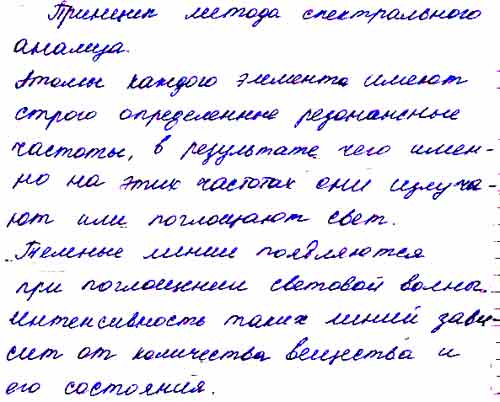 Принцип метода спектрального
анализа.
Атомы каждого элемента имеют
строго определенные резонансные
частоты, в результате чего имен-
но на этих частотах они излуча-
ют или поглощают свет.
Темные линии появляются
при поглощении световой волны.
Интенсивность таких линий зави-
сит от количества вещества и
его состояния.